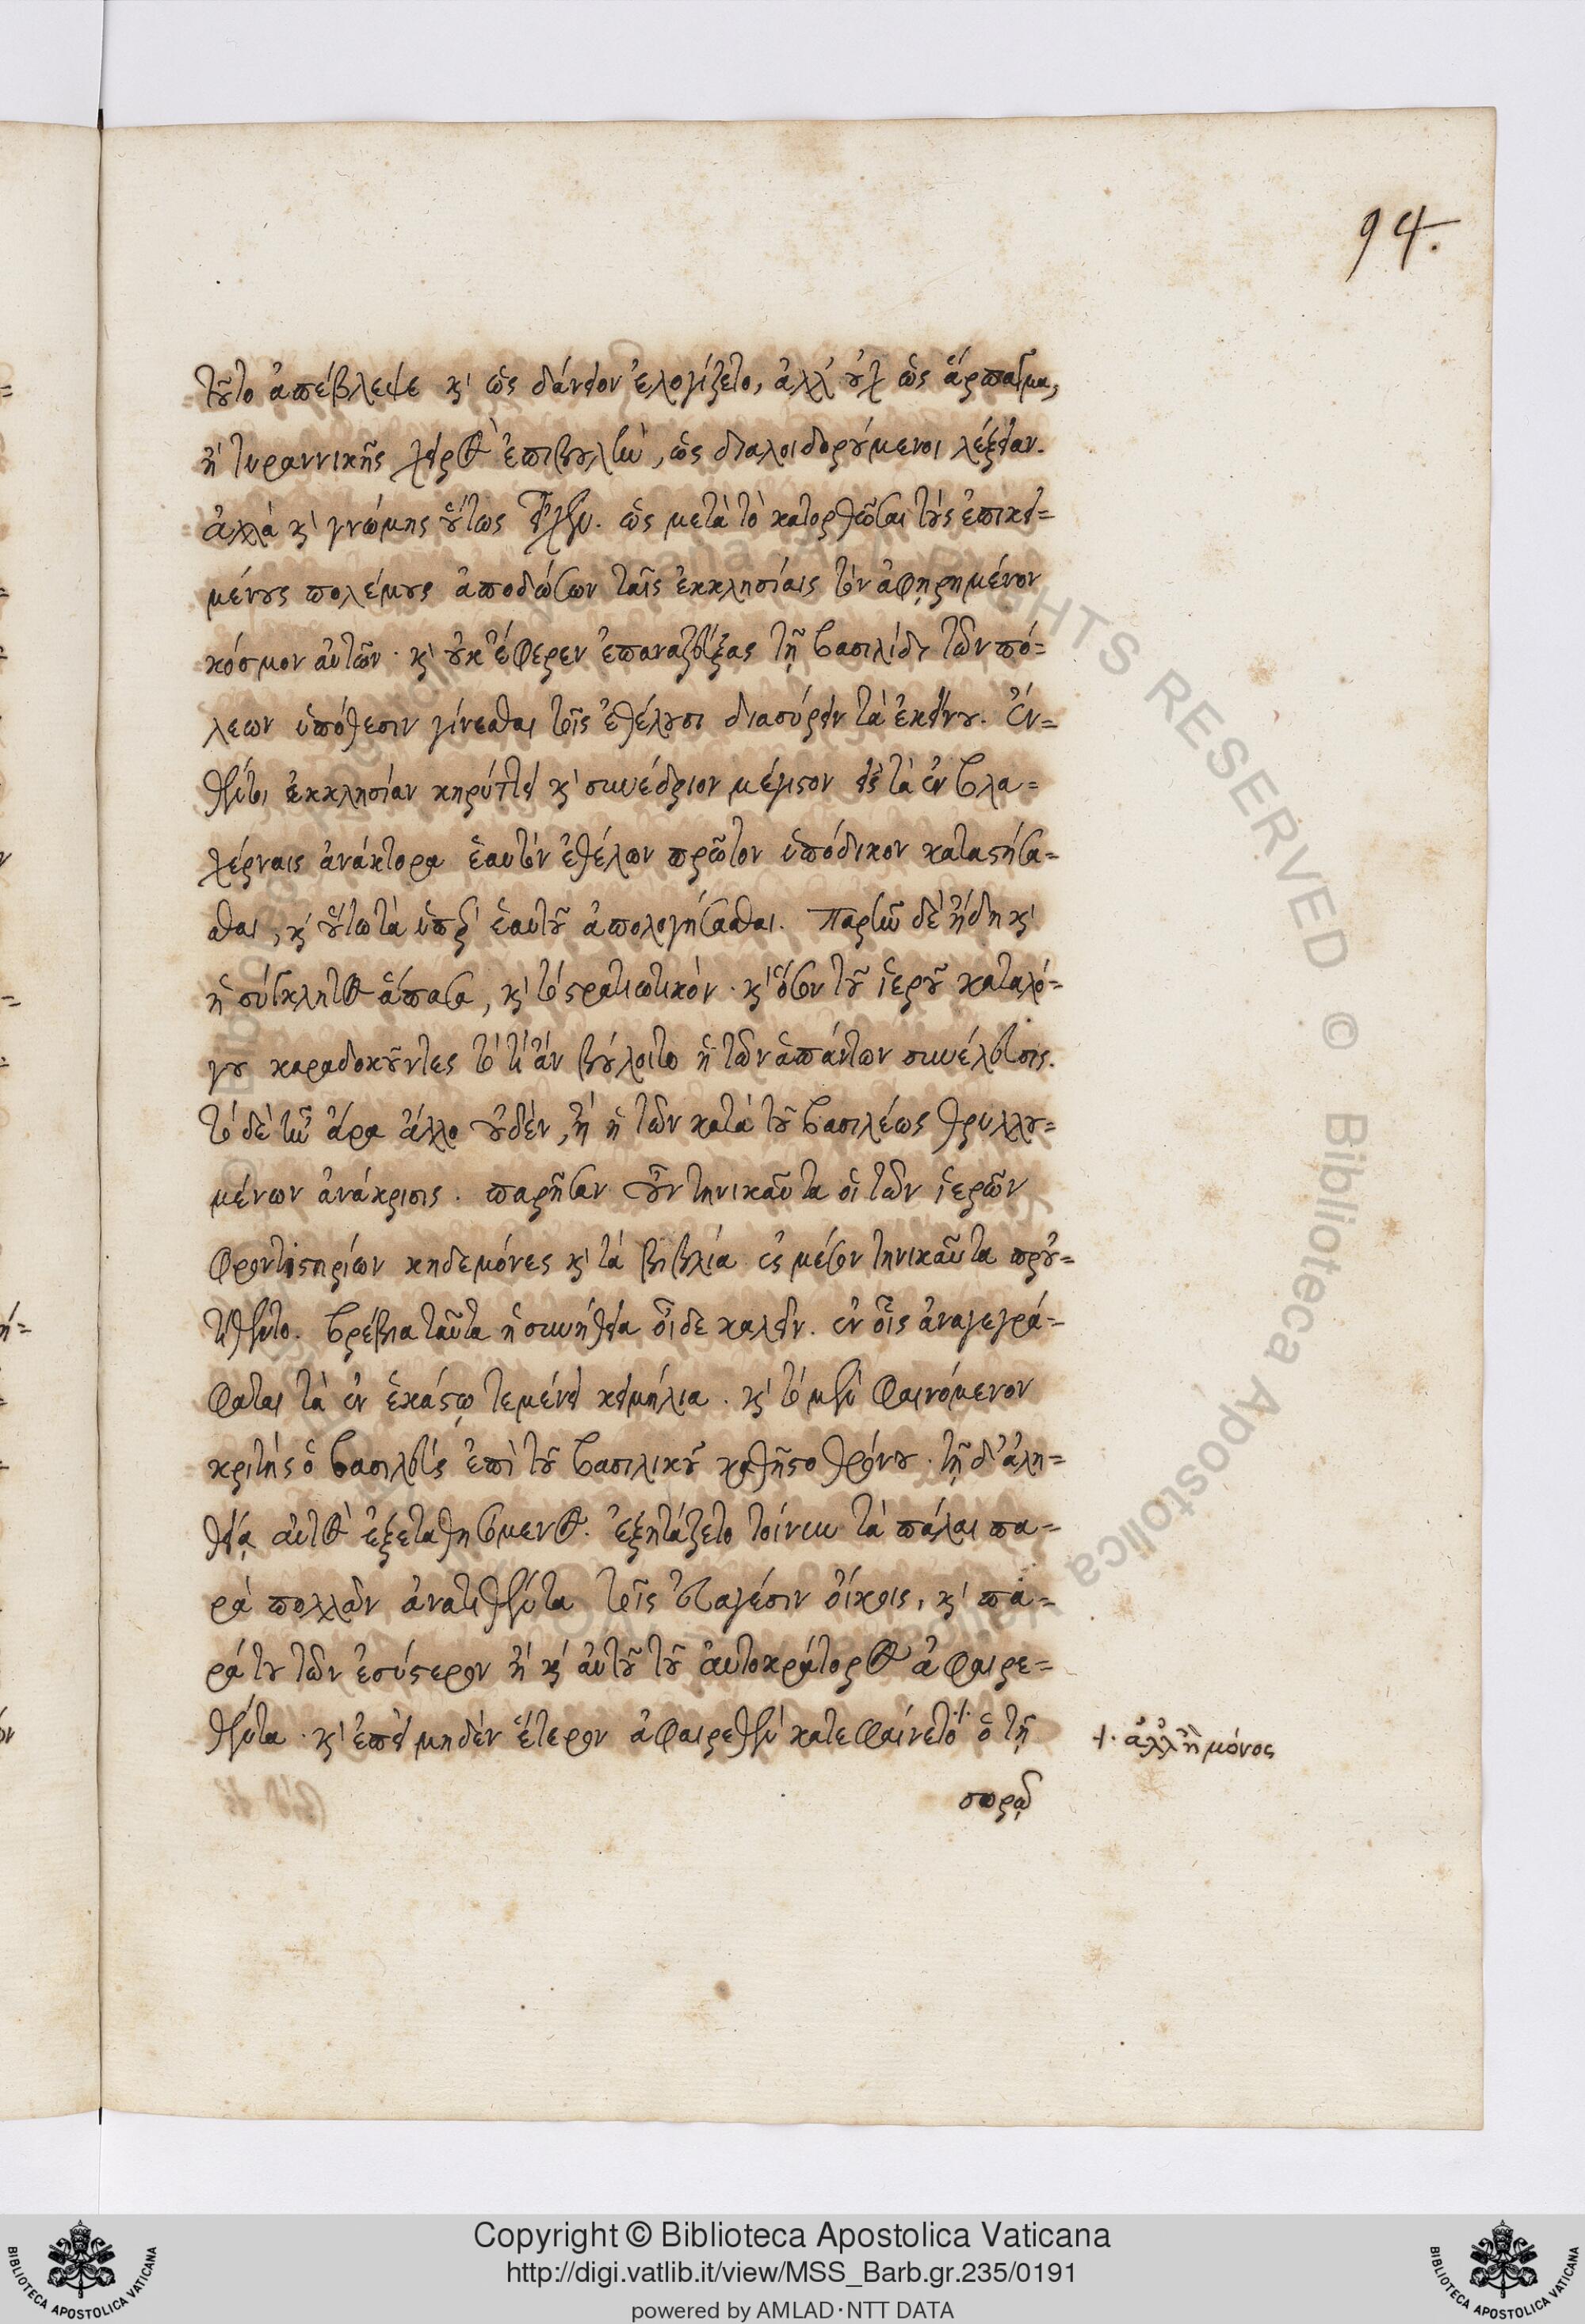 94.
τοῦτο ἀπέβλεψε κ' ὡς δάνειον ἐλογίζετο, ἀλλ' οὐχ ὡς ἅρπαγμα,
ἢ τυραννικῆς χειρὸς ἐπιβουλὴν, ὡς διαλοιδορούμενοι λέξειαν.
ἀλλὰ κ' γνώμης οὕτως εἶχεν. ὡς μετὰ τὸ κατορθῶσαι τοὺς ἐπικει=
μένους πολέμους ἀποδώσων ταῖς ἐκκλησίαις τὸν ἀφῃρημένον
κόσμον αὐτῶν. κ' οὐκ ἔφερεν ἐπαναζεύξας τῇ βασιλίδι τῶν πό=
λεων ὑπόθεσιν γίνεσθαι τοῖς ἐθέλουσι διασύρειν τὰ ἐκείνου. Ἐν=
θέντοι ἐκκλησίαν κηρύττει κ' συνέδριον μέγιστον εἰς τὰ ἐν βλα=
χέρναις ἀνάκτορα ἑαυτὸν ἐθέλων πρῶτον ὑπόδικον καταστήσα=
σθαι, κ' οὕτω τὰ ὑπὲρ ἑαυτοῦ ἀπολογήσασθαι. Παρῆν δὲ ἤδη κ'
ἡ σύγκλητος ἅπασα, κ' τὸ στρατιωτικὸν. κ' ὅσον τοῦ ἱεροῦ καταλό=
γου καραδοκοῦντες τὸ τί ἂν βούλοιτο ἡ τῶν ἁπάντων συνέλευσις.
τὸ δὲ ἦν ἄρα ἄλλο οὐδὲν, ἢ ἡ τῶν κατὰ τοῦ βασιλέως θρυλλου=
μένων ἀνάκρισις. παρῆσαν οὖν τηνικαῦτα οἱ τῶν ἱερῶν
φροντιστηρίων κηδεμόνες κ' τὰ βιβλία ἐς μέσον τηνικαῦτα προὐ=
τίθεντο. βρέβια ταῦτα ἡ συνήθεια οἶδε καλεῖν. ἐν οἷς ἀναγεγρά=
φαται τὰ ἐν ἑκάστῳ τεμένει κειμήλια. κ' τὸ μὲν φαινόμενον
κριτὴς ὁ βασιλεὺς ἐπὶ τοῦ βασιλικοῦ καθῆστο θρόνου. τῇ δ' ἀλη=
θείᾳ αὐτὸς ἐξετασθησόμενος. ἐξητάζετο τοίνυν τὰ πάλαι πα=
ρὰ πολλῶν ἀνατεθέντα τοῖς εὐαγέσιν οἴκοις, κ' πα=
ρά του τῶν ἐσύστερον ἢ κ' αὐτοῦ τοῦ αὐτοκράτορος ἀφαιρε=
θέντα. κ' ἐπεὶ μηδὲν ἕτερον ἀφαιρεθὲν κατεφαίνετο ⸓ ὁ τῇ
⸓ ἀλλ' ἢ μόνος
σορῷ
Copyright © Biblioteca Apostolica Vaticana
http://digi.vatlib.it/view/MSS_Barb.gr.235/0191
powered by AMLAD·NTT DATA